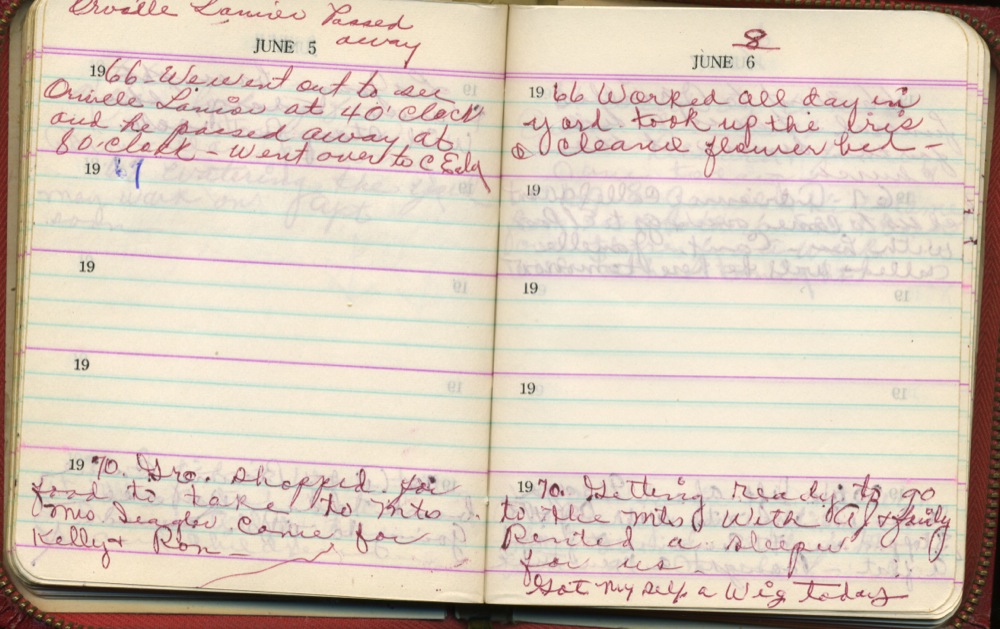 Orville Lanier Passed
away
JUNE 5
1966 - We went out to see
Orville Lanier at 4 O'Clock
and he passed away at
8 O'clock - Went over to C Eda
19 67
19
19
1970. Gro. shopped for
food to take to mts.
Mrs came for
Kelly + Ron -
8
JUNE 6
1966 Worked all day in
yard took up the iris
& cleaned flower bed -
19
19
19
1970. Getting ready to go
to the mts with + family
Rented a sleeper
for us.
Got my self a Wig today